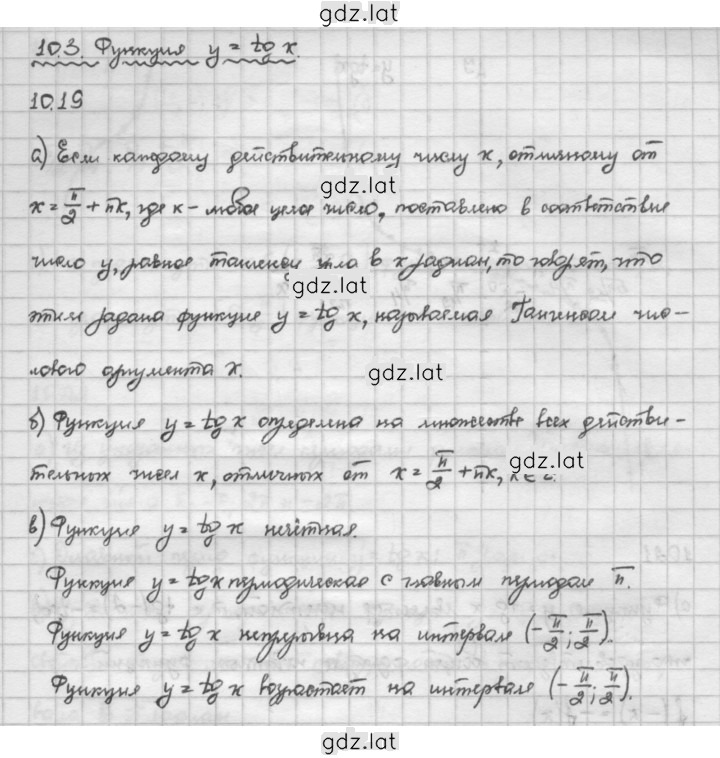 gdz.lat
10.3. Функция y = tg x.
10.19
а) Если каждому действительному числу x, отличному от
x = π/2 + πk, где k - любое целое число, поставлено в соответствие
gdz.lat
число y, равное тангенсу угла в x радиан, то говорят, что
gdz.lat
этим задана функция y = tg x, называемая Тангенсом чис-
лового аргумента x.
gdz.lat
б) Функция y = tg x определена на множестве всех действи-
тельных чисел x, отличных от x = π/2 + πk,
gdz.lat
в) Функция y = tg x нечётная.
Функция y = tg x периодическая с главным периодом π.
Функция y = tg x непрерывна на интервале (-π/2; π/2).
Функция y = tg x возрастает на интервале (-π/2; π/2).
gdz.lat